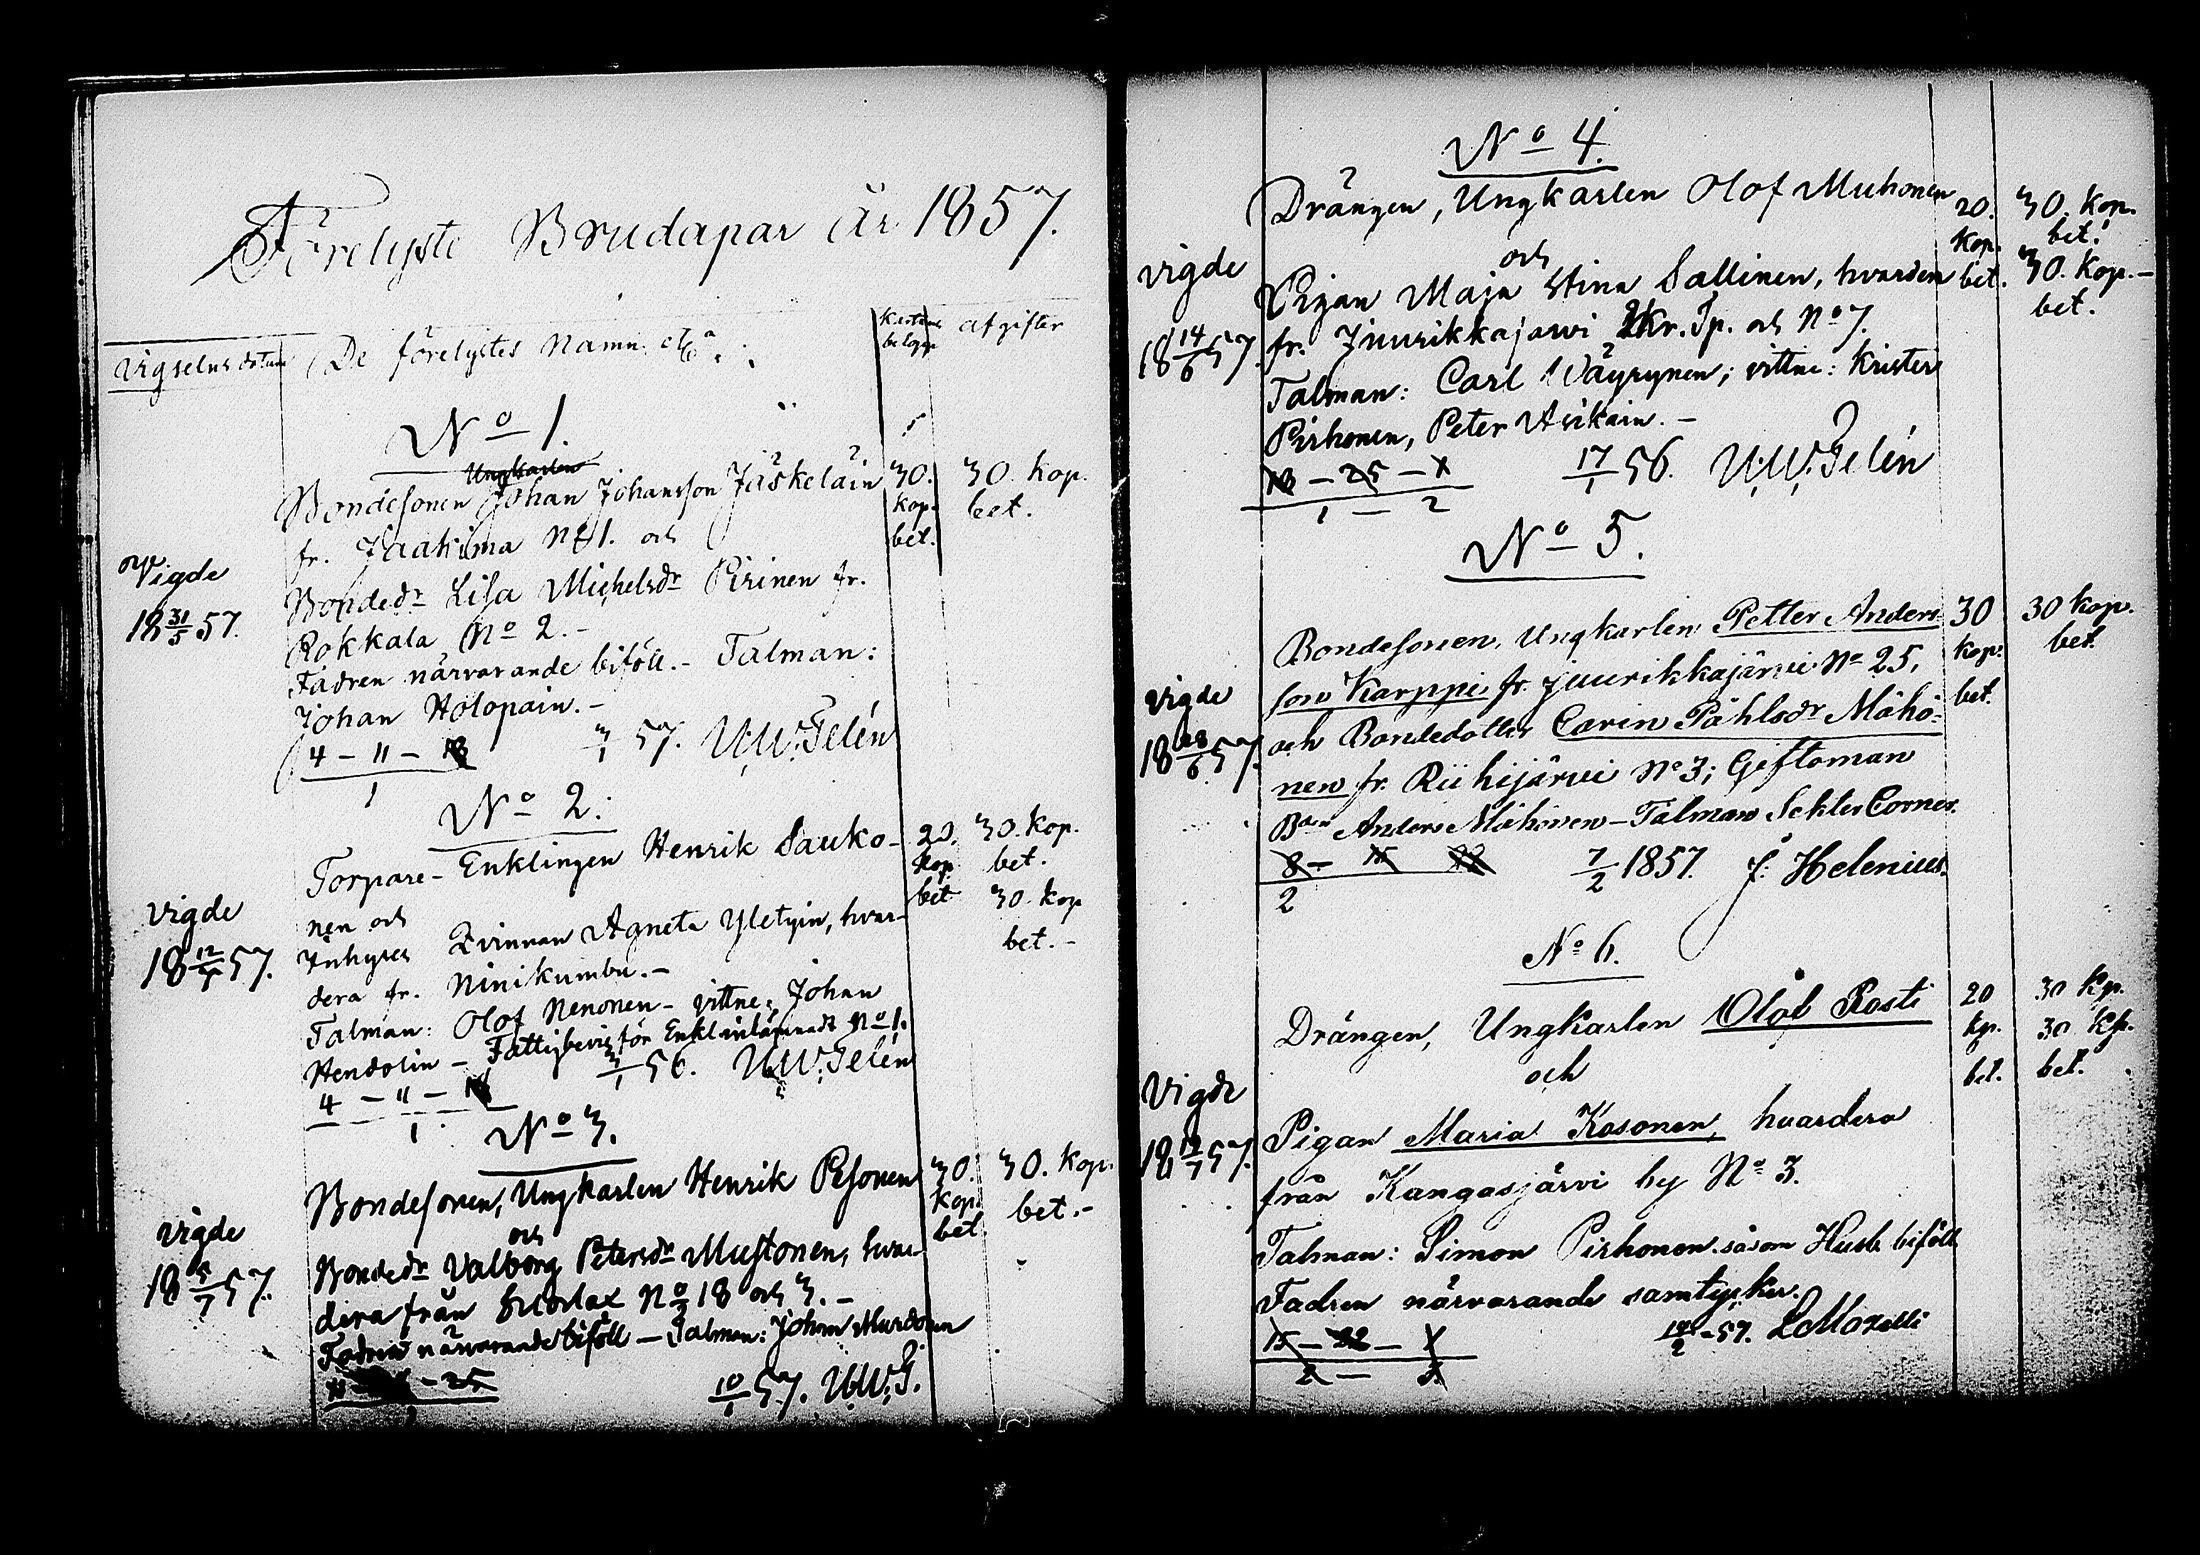 Förelyste Brudapar år 1857.
Vigselns datum
De förelystes Namn etc:
afgifter
No 1.
Ungkarlen
Bondesonen Johan Johansson Jäskeläin
30. kop. bet.
30 kop. bet.
fr. Jaakima No 1. och
Vigde
18 31/5 57.
Bondedr Lisa Michelsdr Pirinen fr.
Rokkala No 2. -
Fadren närvarande biföll. - Talman:
Johan Holopain. -
4 - 11 - 18
1
7/1 57. U.W. Telén
No 2.
Torpare- Enklingen Henrik Sauko-
20. kop bet
30. kop. bet.
30. kop bet. -
nen och
Vigde
18 12/4 57.
Inhyses Qvinnan Agneta Yletyin, hvar-
dera fr. Ninikumbu. -
Talman: Olof Nenonen - vittne: Johan
Hendolin - Fattigbevis för Enkl. inlämnadt No 1.
4 - 11 - 18
1
3/1 56. U.W. Telén
No 3.
Bondesonen, Ungkarlen Henrik Pesonen
30. kop. bet.
30. kop. bet. -
och
Vigde
18 5/7 57.
Bondedr Valborg Petersdr Mustonen, hvar-
dera från No 18 och 3. -
Fadren närvarande biföll - Talman: Johan
- 25
10/1 57. U.W.T.
No 4.
Drängen, Ungkarlen Olof Muhonen
20. kop. bet.
30. kop. bet.
30. kop. - bet.
och
Vigde
18 14/6 57.
Pigan Maja Stina Sallinen, hvardera
fr. Juurikkajarvi Kr. Tp. och No 7.
Talman: Carl Väyrynen; vittne: Krister
Pirhonen, Peter Asikain. -
18 - 25 - 1
1 - 2
17/1 56. U.W. Telén
No 5.
Bondesonen, Ungkarlen Petter Anders-
30 kop. bet.
30 kop. bet.
son Karppi fr. Juurikkajärvi No 25,
Vigde
18 28/6 57.
och Bondedotter Carin Påhlsdr Mähö-
nen fr. Riihijärvi No 3; Giftoman
Bdn Anders Mähönen - Talman Sekter Cornér.
8 - 15 22
2
7/2 1857. f. Helenius.
No 6.
Drängen, Ungkarlen Olof Rosti
20 kp. bet.
30 kp.
30 kp. bet.
och
Vigde
18 12/7 57.
Pigan Maria Kosonen, hvardera
från Kangasjärvi by No 3.
Talman: Simon Pirhonen såsom Husb. biföll
Fadren närvarande samtycker.
15 - 22 - 1
2 - 3
14/2 - 57.